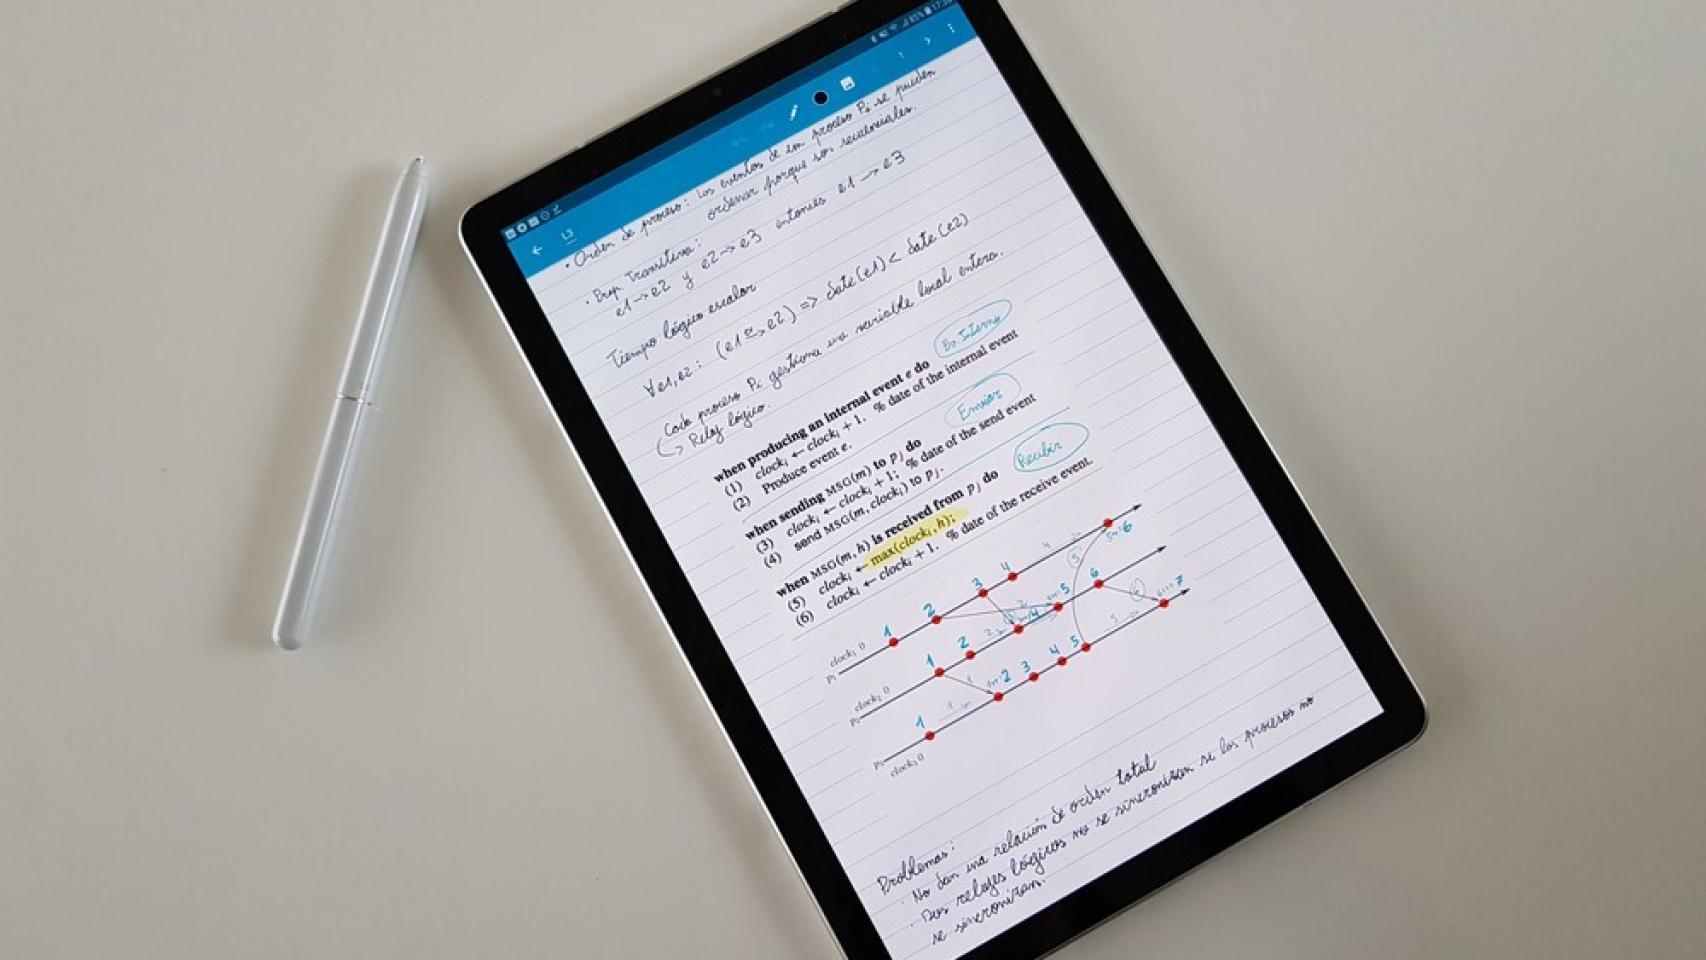 85% 17:38
L3
• Orden de proceso: Los eventos de un proceso Pi se pueden
ordenar porque son secuenciales.
• Prop. Transitiva:
e1→e2 y e2→e3 entonces e1→e3
Tiempo lógico escalar
∀e1,e2: (e1 →e2) => date(e1) < date(e2)
Cada proceso Pi gestiona una variable local entera.
↳ Reloj lógico.
when producing an internal event e do
Ev Interno
(1) clockᵢ ← clockᵢ + 1. % date of the internal event
(2) Produce event e.
when sending MSG(m) to pⱼ do
Enviar
(3) clockᵢ ← clockᵢ + 1; % date of the send event
(4) send MSG(m, clockᵢ) to pⱼ.
when MSG(m, h) is received from pⱼ do
Recibir
(5) clockᵢ ← max(clockᵢ, h);
(6) clockᵢ ← clockᵢ + 1. % date of the receive event.
P₁ clock₁ 0 1 2 3 4 4 5 6
P₂ clock₂ 0 1 2 2 2 4 5 6
P₃ clock₃ 0 1 1 1 2 3 4 5 5 7
Problemas:
• No dan una relación de orden total
• Dos relojes lógicos no se sincronizan si los procesos no
se sincronizan.